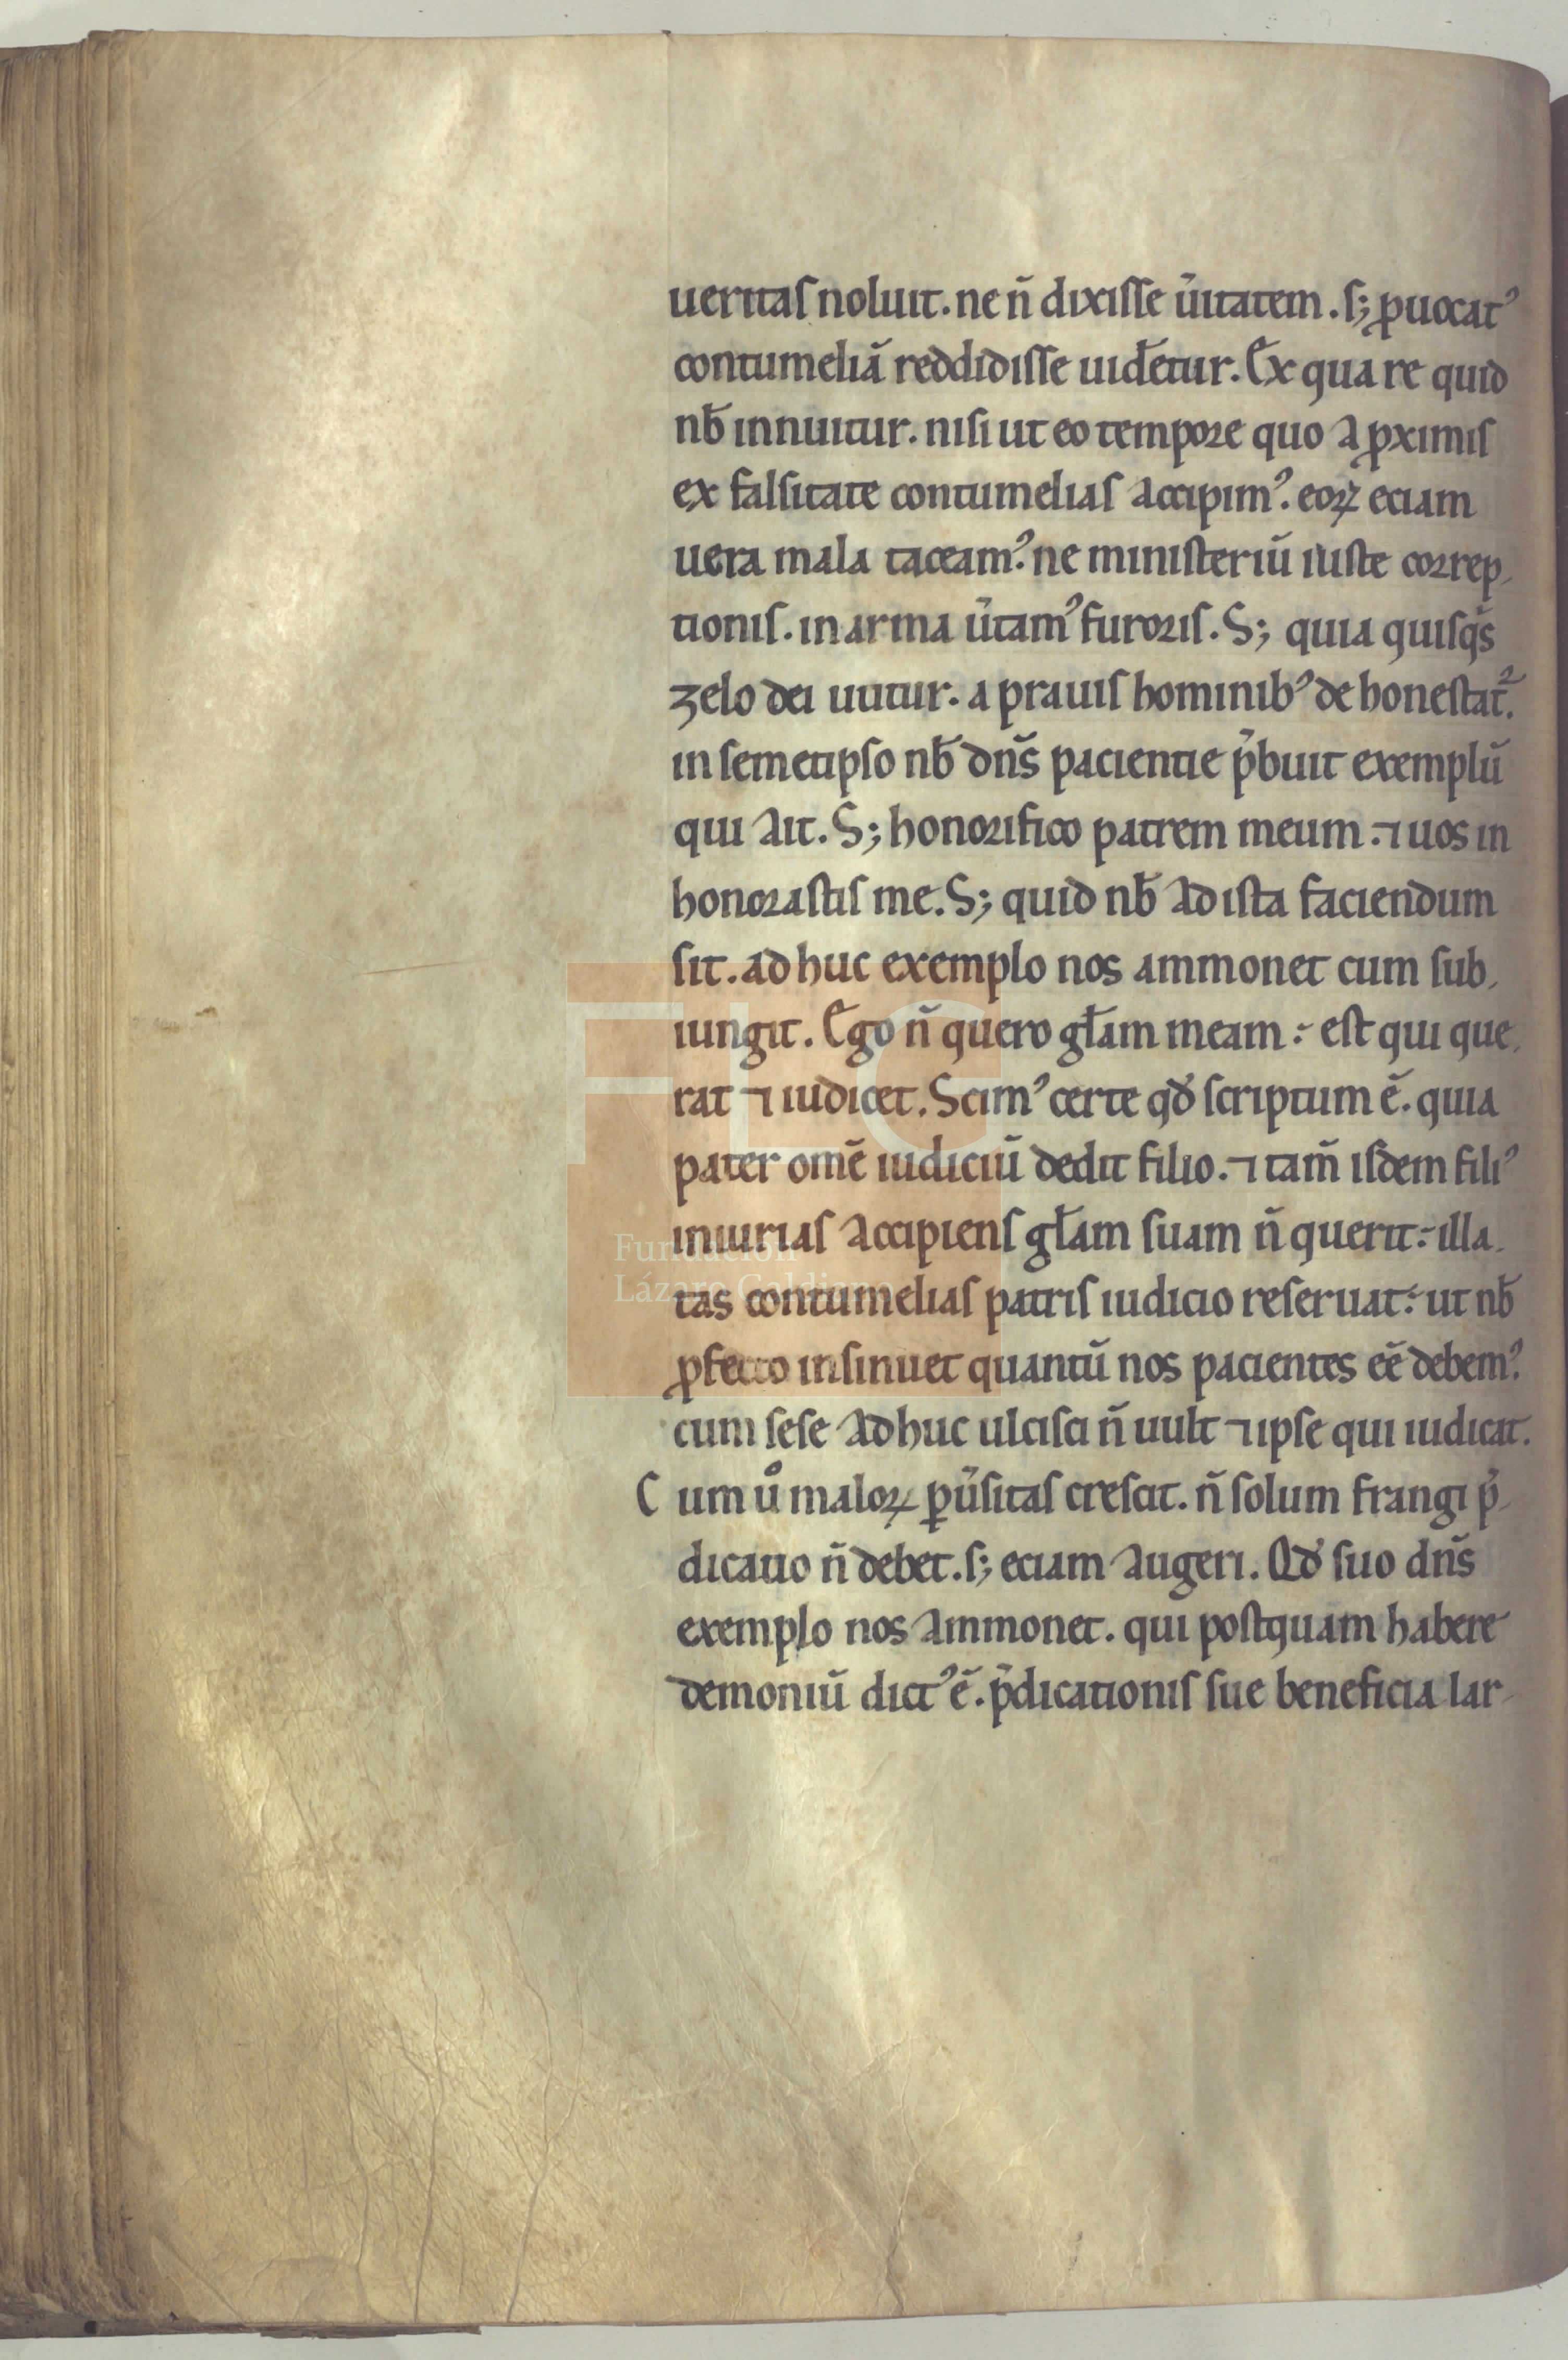 ueritas noluit. ne n̄ dixisse ūitatem. s; ꝓuocatꝰ
contumeliā reddidisse uidetur. Ex qua re quid
nb̄ innuitur. nisi ut eo tempore quo a ꝓximis
ex falsitate contumelias accipimꝰ. eoꝝ eciam
uera mala taceamꝰ. ne ministeriū iuste correp-
tionis. in arma ūtamꝰ furoris. S; quia quisqͥs
zelo dei utitur. a prauis hominibꝰ dehonestat᷑.
in semetipso nb̄ dn̄s pacientie p̄buit exemplū
qui ait. S; honorifico patrem meum. ⁊ uos in
honorastis me. S; quid nb̄ ad ista faciendum
sit. ad huc exemplo nos ammonet cum sub-
iungit. Ego n̄ quero gl̄am meam. est qui que-
rat ⁊ iudicet. Scimꝰ certe qd̄ scriptum ē. quia
pater omē iudiciū dedit filio. ⁊ tam̄ isdem filiꝰ
iniurias accipiens gl̄am suam n̄ querit. illa-
tas contumelias patris iudicio reseruat. ut nb̄
ꝓfecto insinuet quantū nos pacientes eē debemꝰ.
cum sese ad huc ulcisci n̄ uult ⁊ ipse qui iudicat.
Cum uͦ maloꝝ ꝑūsitas crescit. n̄ solum frangi p̄-
dicatio n̄ debet. s; eciam augeri. Qd̄ suo dn̄s
exemplo nos ammonet. qui postquam habere
demoniū dictꝰ ē. p̄dicationis sue beneficia lar-
FLG
Fundación
Lázaro Galdiano